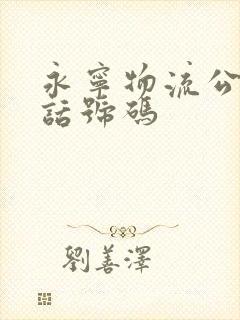 永寧物流公
話號碼
劉善澤